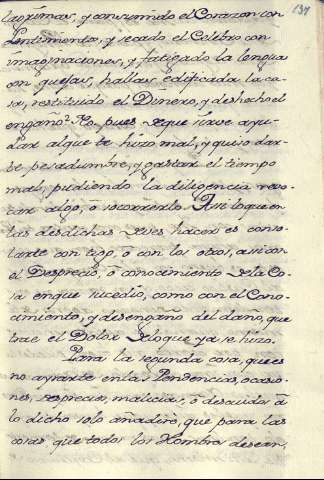 137
lagrimas, y consumido el Corazon con
sentimientos, y secado el Celebro con
imaginaciones, y fatigado la lengua
con quejas, hallas edificada la ca-
sa, restituido el Dinero, y deshecho el
engaño? No pues de que sirve ayu-
dar al que te hizo mal, y quiso dar-
te pesadumbre, y gastar el tiempo
mal, pudiendo la diligencia resto-
rar algo, ô socorrerlo. Assi lo que en
las desdichas debes hacer es conso-
larte con tigo, ô con los otros, assi con
el Desprecio, ô conocimiento de la Co-
sa en que sucedio, como con el Cono-
cimiento, y desengaño del daño, que
trae el Dolor de lo que ya se hizo.
Para la segunda cosa, que es
no ayrarte en las Pendencias, ocasio-
nes, desprecios, malicias, ô descuidos â
lo dicho solo añadirè, que para las
cosas que todos los Hombres desean,